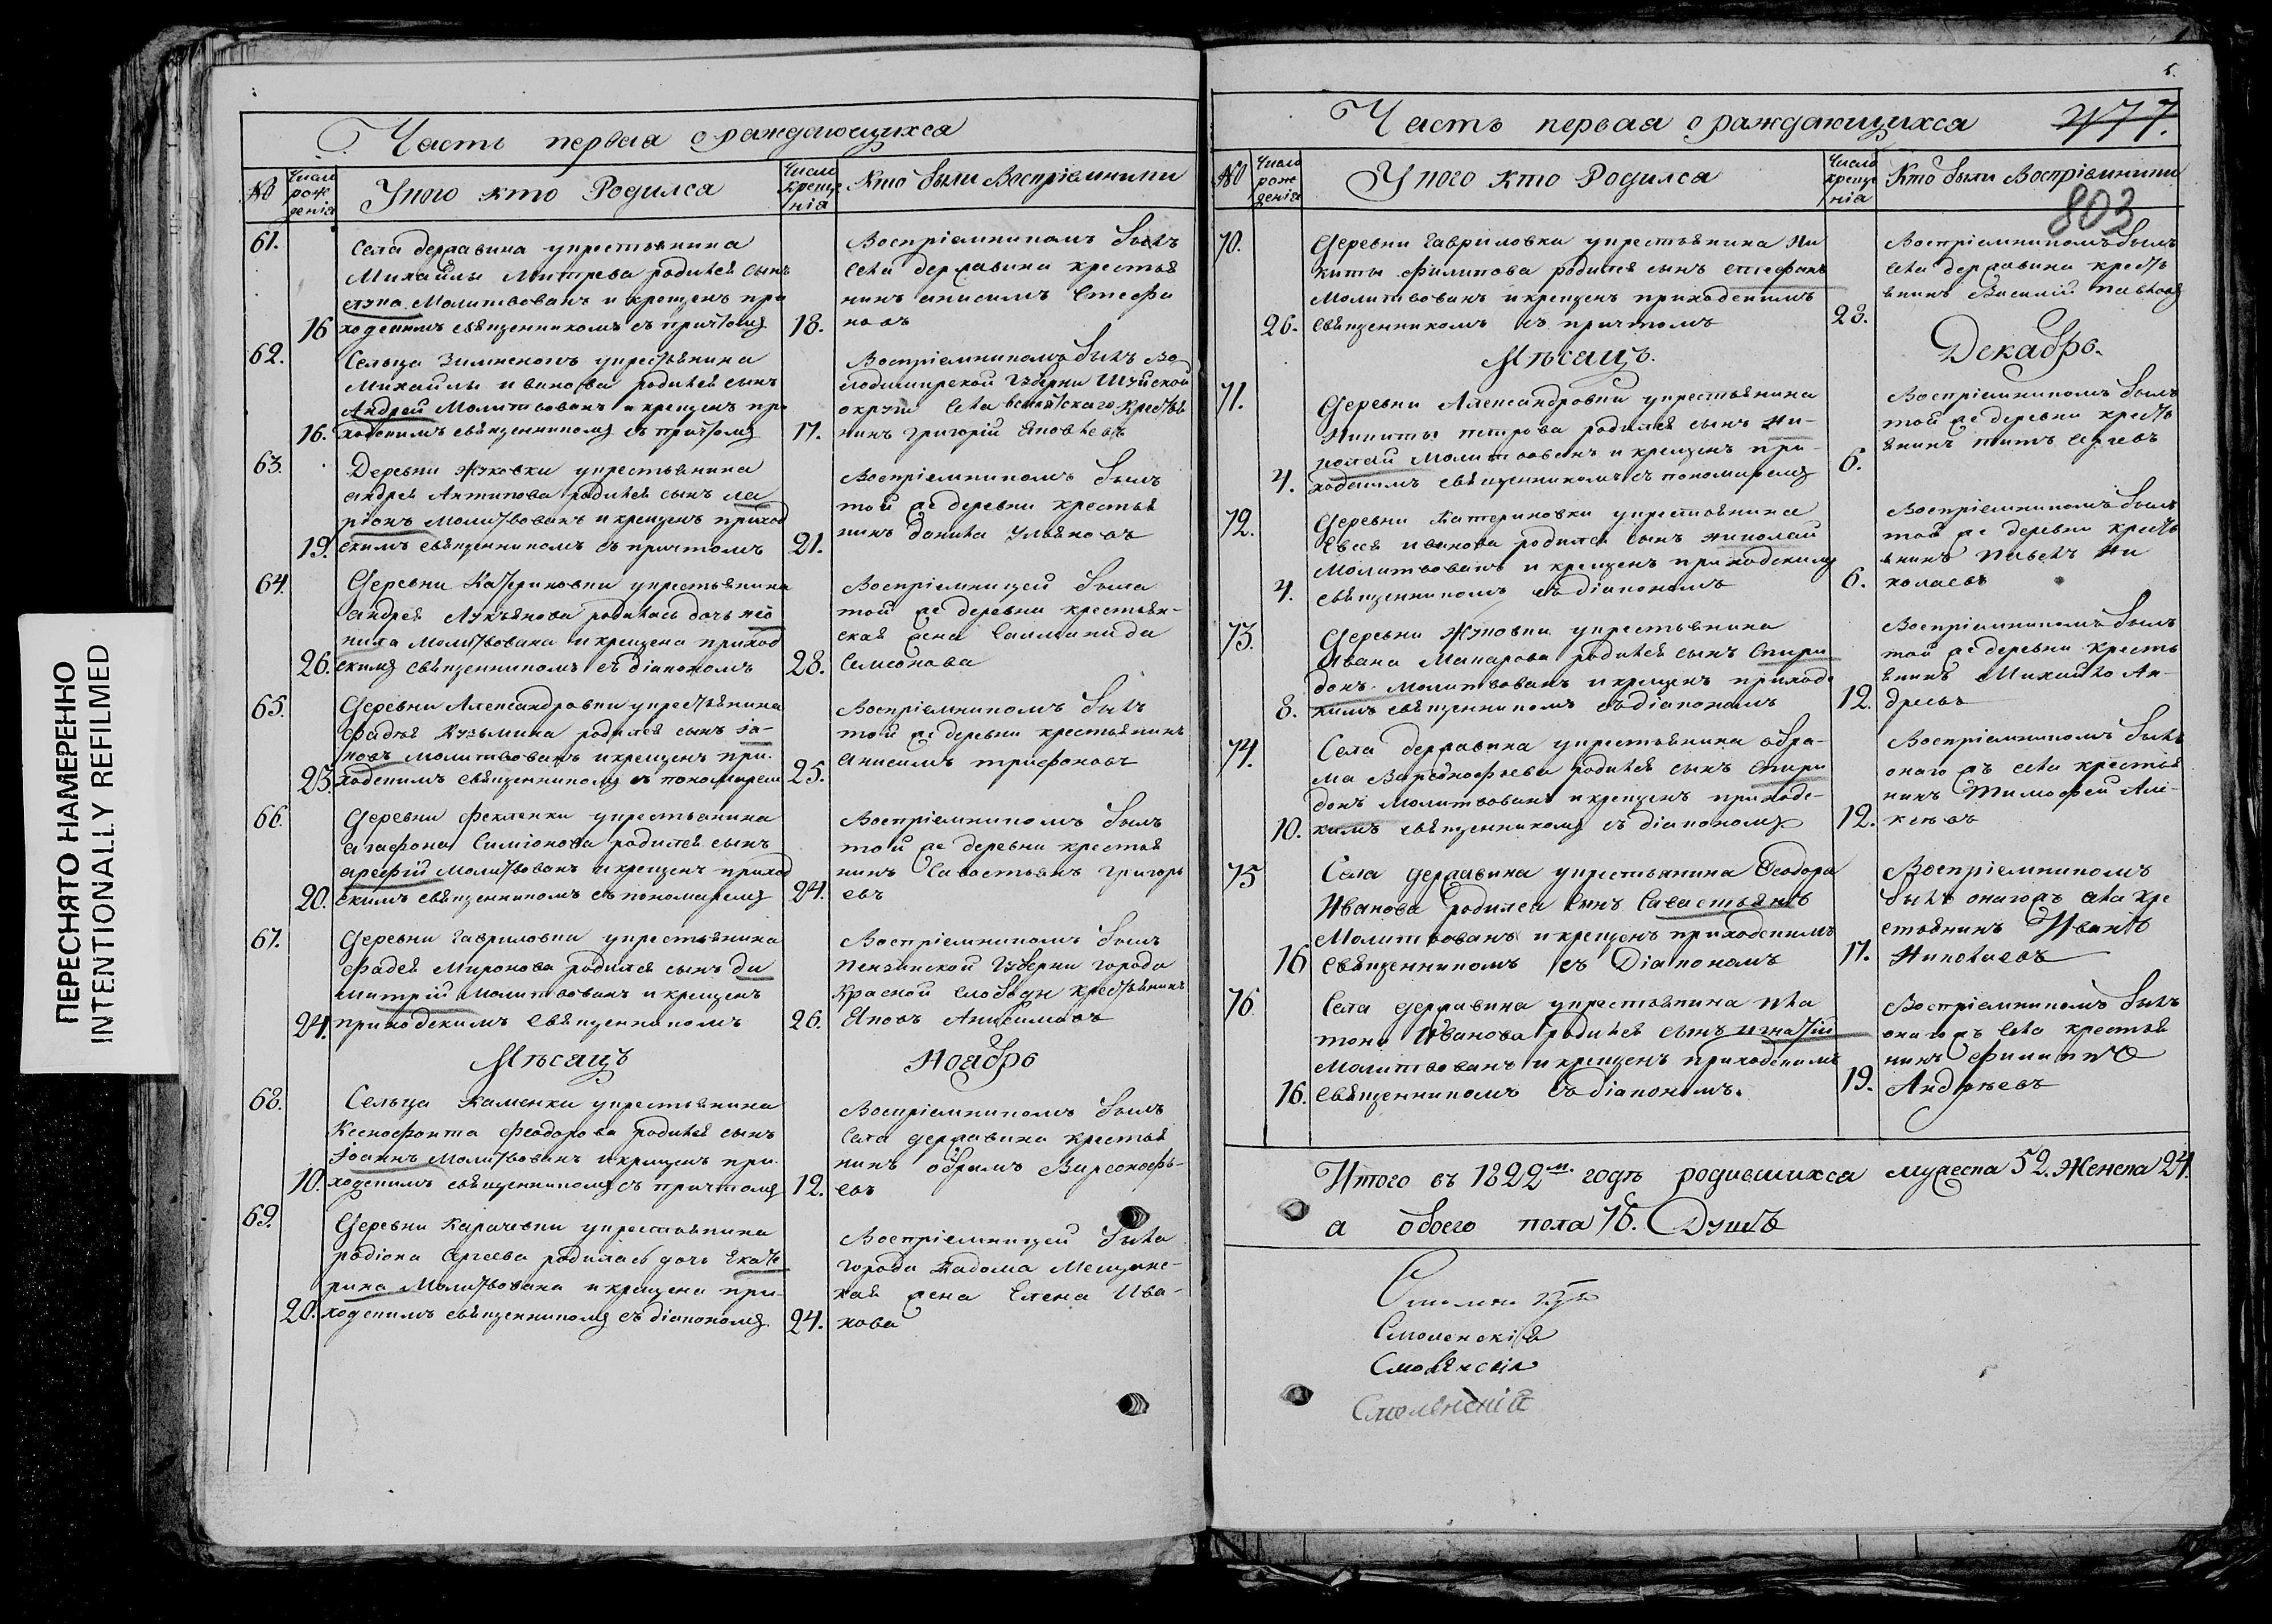 ПЕРЕСНЯТО НАМЕРЕННО
INTENTIONALLY REFILMED
Часть первая ораждающихся
№
Число рож денія
Укого кто Родился
Число креще нія
Кто были Воспріемники
61.
Села державина укрестьянина
Михайлы Митрева родился сынъ
Молитвованъ и крещенъ при
16 ходскимъ священникомъ съ причтомъ
18.
Воспріемникомъ былъ
села державина крестья
нинъ анисимъ Стефа
новъ
62.
Сельца укрестьянина
Михайлы иванова родился сынъ
Андрей Молитвованъ и крещенъ при
16. ходскимъ священникомъ съ причтомъ
17.
Воспріемникомъ былъ Во
лодимирской Губерни Шуйской
округи села крестья
нинъ григорій яковлевъ
63.
Деревни Жуковки укрестьянина
андрея Антипова родился сынъ ла
ріонъ молитвованъ и крещенъ приход
19. скимъ священникомъ съ причтомъ
21.
Воспріемникомъ былъ
той же деревни крестья
нинъ данила Ульяновъ
64.
Деревни Катериновки укрестьянина
андрея Лукъянова родилась дочь нео
нила молитвована и крещена приход
26. скимъ священникомъ съ діакономъ
28.
Воспріемницей была
той же деревни крестьян-
ская жена Саламанида
Симеонова
65.
Деревни Александровки укрестьянина
Фадея Кузьмина родился сынъ іа-
ковъ молитвованъ и крещенъ при-
23. ходскимъ священникомъ съ пономаремъ
25.
Воспріемникомъ былъ
той же деревни крестьянинъ
анисимъ трифоновъ
66.
Деревни Феклинки укрестьянина
агафона Симіонова родился сынъ
арефій молитвованъ и крещенъ приход
20. скимъ священникомъ съ пономаремъ
24.
Воспріемникомъ былъ
той же деревни крестья
нинъ Савастьянъ григорь
евъ
67.
Деревни гавриловки укрестьянина
Фадея Миронова родился сынъ ди
митрій Молитвованъ и крещенъ
24. приходскимъ священникомъ
26.
Воспріемникомъ былъ
пензинской Губерни города
Красной слободы крестьянинъ
яковъ Анисимовъ
Мѣсяцъ
Ноябрь
68.
Сельца Каменки укрестьянина
Ксенофонта Феодорова родился сынъ
Іоаннъ Молитвованъ и крещенъ при-
10. ходскимъ священникомъ съ причтомъ
12.
Воспріемникомъ былъ
Села державина крестья
нинъ обрамъ Варсонофь-
евъ
69.
Деревни Карачевки укрестьянина
родіона Сргеева родилась дочь Екате
рина Молитвована и крещена при-
20. ходскимъ священникомъ съ діакономъ
24.
Воспріемницей была
города Кадома Мещанс-
кая жена Елена Ива-
нова
Часть первая ораждающихся
477.
№
Число рож денія
Укого кто Родился
Число креще нія
Кто были Воспріемники
803
70.
Деревни гавриловки укрестьянина Ни
киты филипова родился сынъ стефанъ
Молитвованъ и крещенъ приходскимъ
26. священникомъ съ причтомъ
28.
Воспріемникомъ былъ
села державина кресть
янинъ Василій павловъ
Мѣсяцъ.
Декабрь.
71.
Деревни Александровки укрестьянина
Никиты петрова родился сынъ Ни-
колай Молитвованъ и крещенъ при-
4. ходскимъ священникомъ съ пономаремъ
6.
Воспріемникомъ былъ
той же деревни кресть
янинъ титъ сергеевъ
72.
Деревни Катериновки укрестьянина
Евсея иванова родился сынъ николай
Молитвованъ и крещенъ приходскимъ
4. священникомъ съ діакономъ
6.
Воспріемникомъ былъ
той же деревни кресть
янинъ павелъ Ни
колаевъ
73.
Деревни Жуковки укрестьянина
Ивана Макарова родился сынъ Спири
донъ молитвованъ и крещенъ приходс
8. кимъ священникомъ съ діакономъ
12.
Воспріемникомъ былъ
той же деревни кресть
янинъ Михайло Ан-
дреевъ
74.
Села державина укрестьянина обра-
ма Варсонофьева родился сынъ Спири
донъ молитвованъ и крещенъ приходс-
10. кимъ священникомъ съ діакономъ
12.
Воспріемникомъ былъ
онагожъ села крестья
нинъ Тимофей Але-
ксѣевъ
75
Села державина укрестьянина Феодора
Иванова родился сынъ Савастьянъ
Молитвованъ и крещенъ приходскимъ
16 священникомъ съ Діакономъ
17.
Воспріемникомъ
былъ онагожъ села кре
стьянинъ Иванъ
Николаевъ
76
Села державина укрестьянина Пла
тона Иванова родился сынъ игнатій
Молитвованъ и крещенъ приходскимъ
16. священникомъ съ діакономъ.
19.
Воспріемникомъ былъ
онагожъ села крестья
нинъ филиппъ
Андрѣевъ
Итого въ 1822м. годѣ родившихся мужеска 52. Женска 24.
а обоего пола 76. Душъ
Смоленскій
Смоленскія
Смоленскія